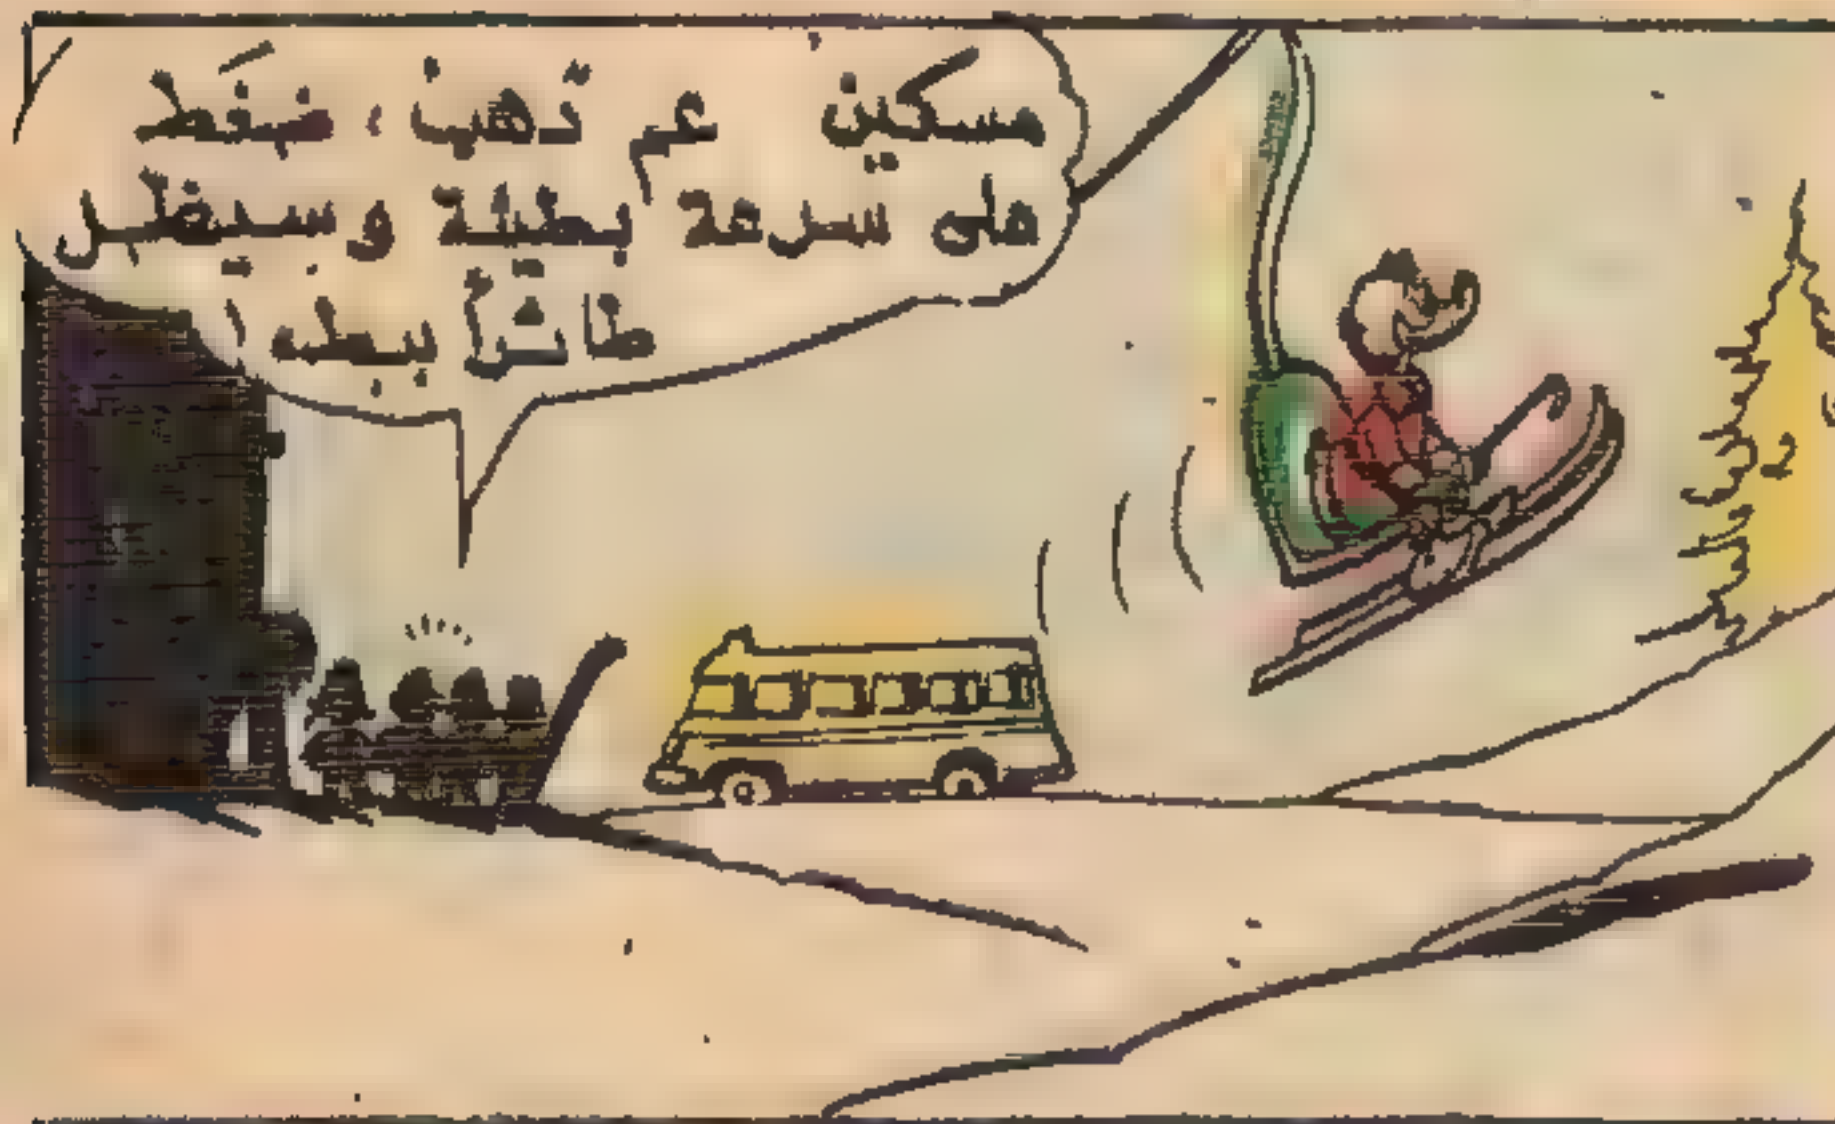 مسكين عم دَهبْ، ضغَط
على سرعة بطيئة وسيظل
طائراً ببطء!